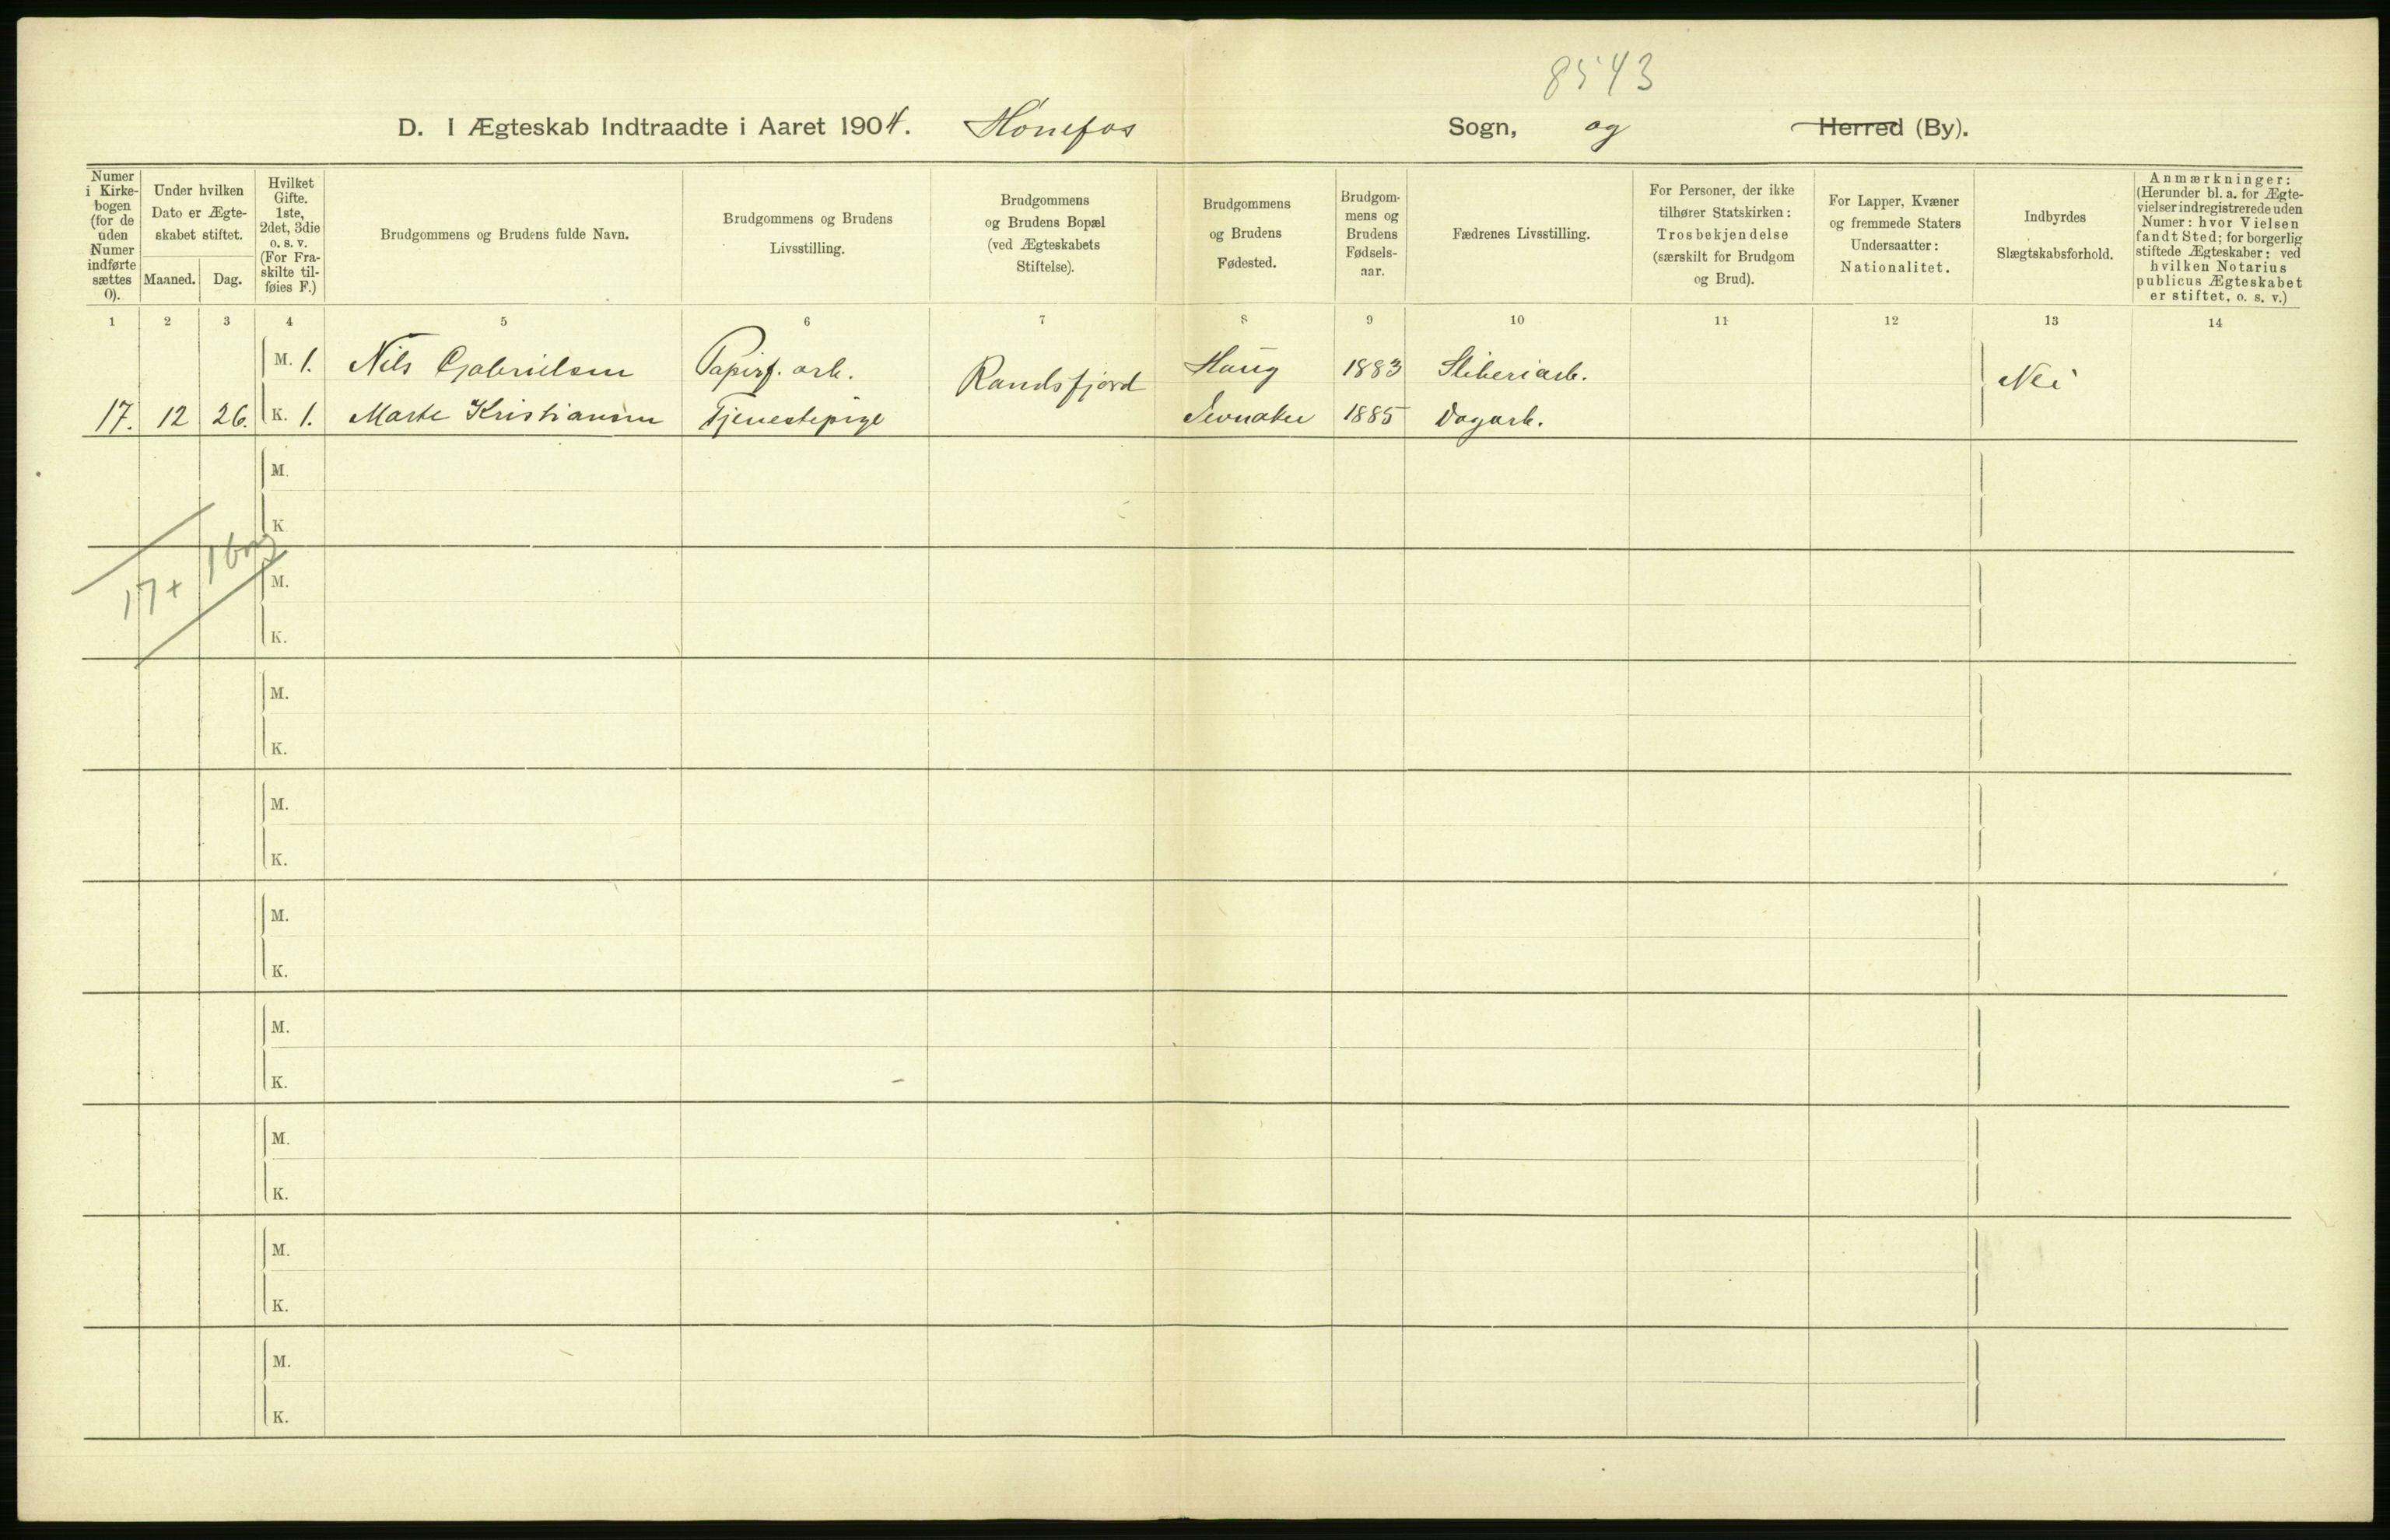 8543
D. I Ægteskab Indtraadte i Aaret 1904. Hönefos Sogn, og Herred (By).
Numer i Kirkebogen (for de uden Numer indførte sættes 0).
Under hvilken Dato er Ægteskabet stiftet.
Maaned. Dag.
Hvilket Gifte. 1ste, 2det, 3die o. s. v. (For Fraskilte tilføies F.)
Brudgommens og Brudens fulde Navn.
Brudgommens og Brudens Livsstilling.
Brudgommens og Brudens Bopæl (ved Ægteskabets Stiftelse).
Brudgommens og Brudens Fødested.
Brudgommens og Brudens Fødselsaar.
Fædrenes Livsstilling.
For Personer, der ikke tilhører Statskirken: Trosbekjendelse (særskilt for Brudgom og Brud).
For Lapper, Kvæner og fremmede Staters Undersaatter: Nationalitet.
Indbyrdes Slægtskabsforhold.
Anmærkninger: (Herunder bl. a. for Ægtevielser indregistrerede uden Numer: hvor Vielsen fandt Sted; for borgerlig stiftede Ægteskaber: ved hvilken Notarius publicus Ægteskabet er stiftet, o. s. v.)
1 2 3 4 5 6 7 8 9 10 11 12 13 14
M. 1. Nils Gabrielsen Papirf. arb. Randsfjord Haug 1883 Sliberiarb. Nei
17. 12 26. K. 1. Marte Kristiansen Tjenestepige Jevnaker 1885 Dagarb.
M.
K
17 + 1 borg
M.
K.
M.
K.
M.
K.
M.
K.
M.
K.
M.
K.
M.
K.
M.
K.